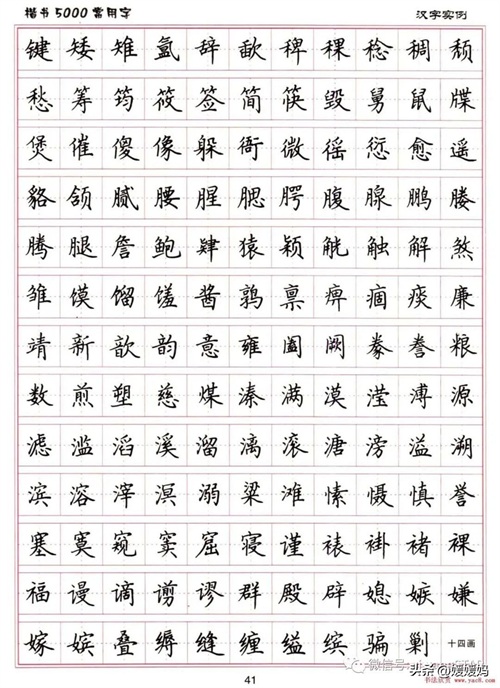 楷书5000常用字 汉字实例
键矮雉氲辞歃稗稞稔稠颓
愁筹筠筱签简筷毁舅鼠牒
煲催傻像躲衙微徭愆愈遥
貉颌腻腰腥腮腭腹腺鹏媵
腾腿詹鲍肆猿颖觥触解煞
雏馍馏馐酱鹑禀痹痼痰廉
靖新歆韵意雍阖阙豢誊粮
数煎塑慈煤溱满漠滢溥源
滤滥滔溪溜漓滚溏滂溢溯
滨溶滓溟溺粱滩愫慑慎誉
塞寞窥窦窟寝谨裱褂褚裸
福谩谪谫谬群殿辟媳嫉嫌
嫁嫔叠缛缝缠缢缤骗剿 十四画
41
头条 @媛媛妈
书法欣赏 www.yac8.com